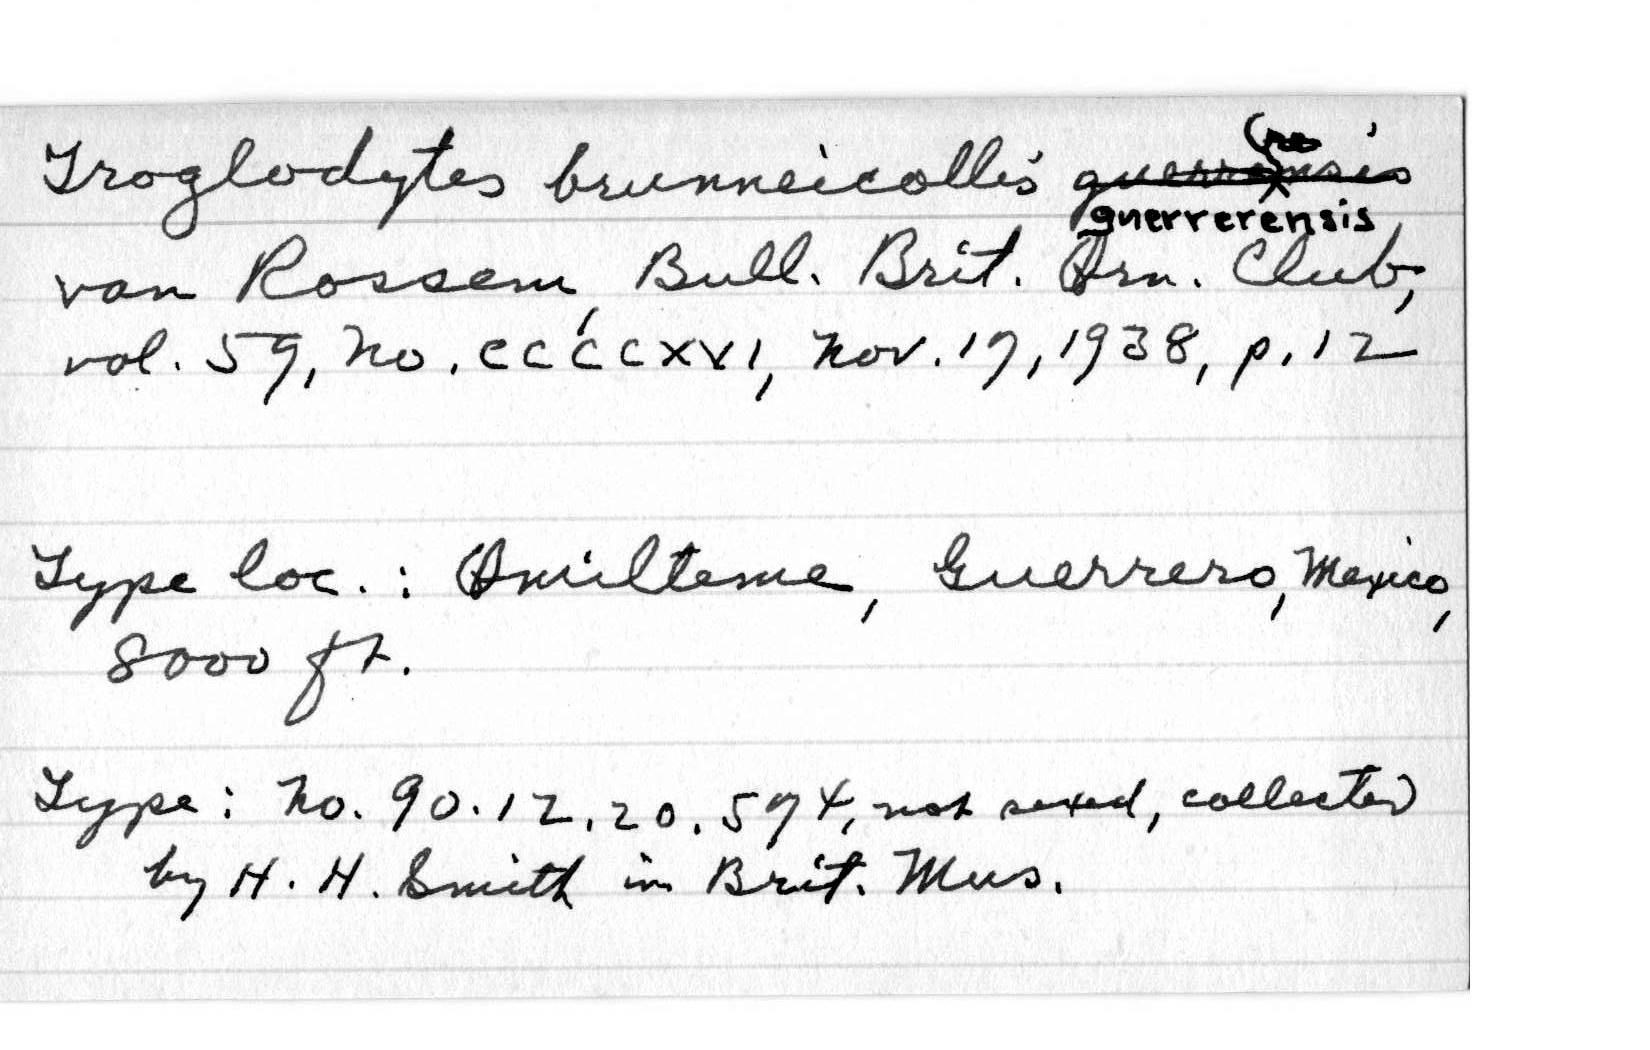 Troglodytes brunneicollis guerrensis
re
guerrerensis
van Rossem, Bull. Brit. Orn. Club,
vol. 59, No. CCCCXVI, Nov. 17, 1938, p. 12
Type loc. : Omilteme, Guerrero, Mexico,
8000 ft.
Type: No. 90.12.20.574, not sexed, collected
by H. H. Smith in Brit. Mus.